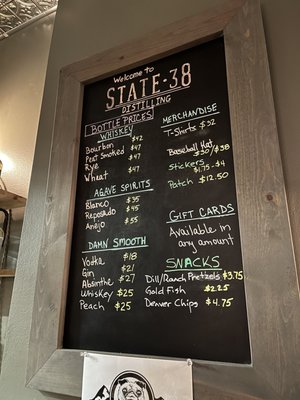 Welcome to
STATE-38
DISTILLING
BOTTLE PRICES
WHISKEY
Bourbon $42
Peat Smoked $47
Rye $47
Wheat $47
AGAVE SPIRITS
Blanco $35
Reposado $45
Anejo $55
DAMN SMOOTH
Vodka $18
Gin $21
Absinthe $27
Whiskey $25
Peach $25
MERCHANDISE
T-Shirts $32
Baseball Hat $30/$38
Stickers $1.75-$4
Patch $12.50
GIFT CARDS
Available in
any amount
SNACKS
Dill/Ranch Pretzels $3.75
Gold Fish $2.25
Denver Chips $4.75